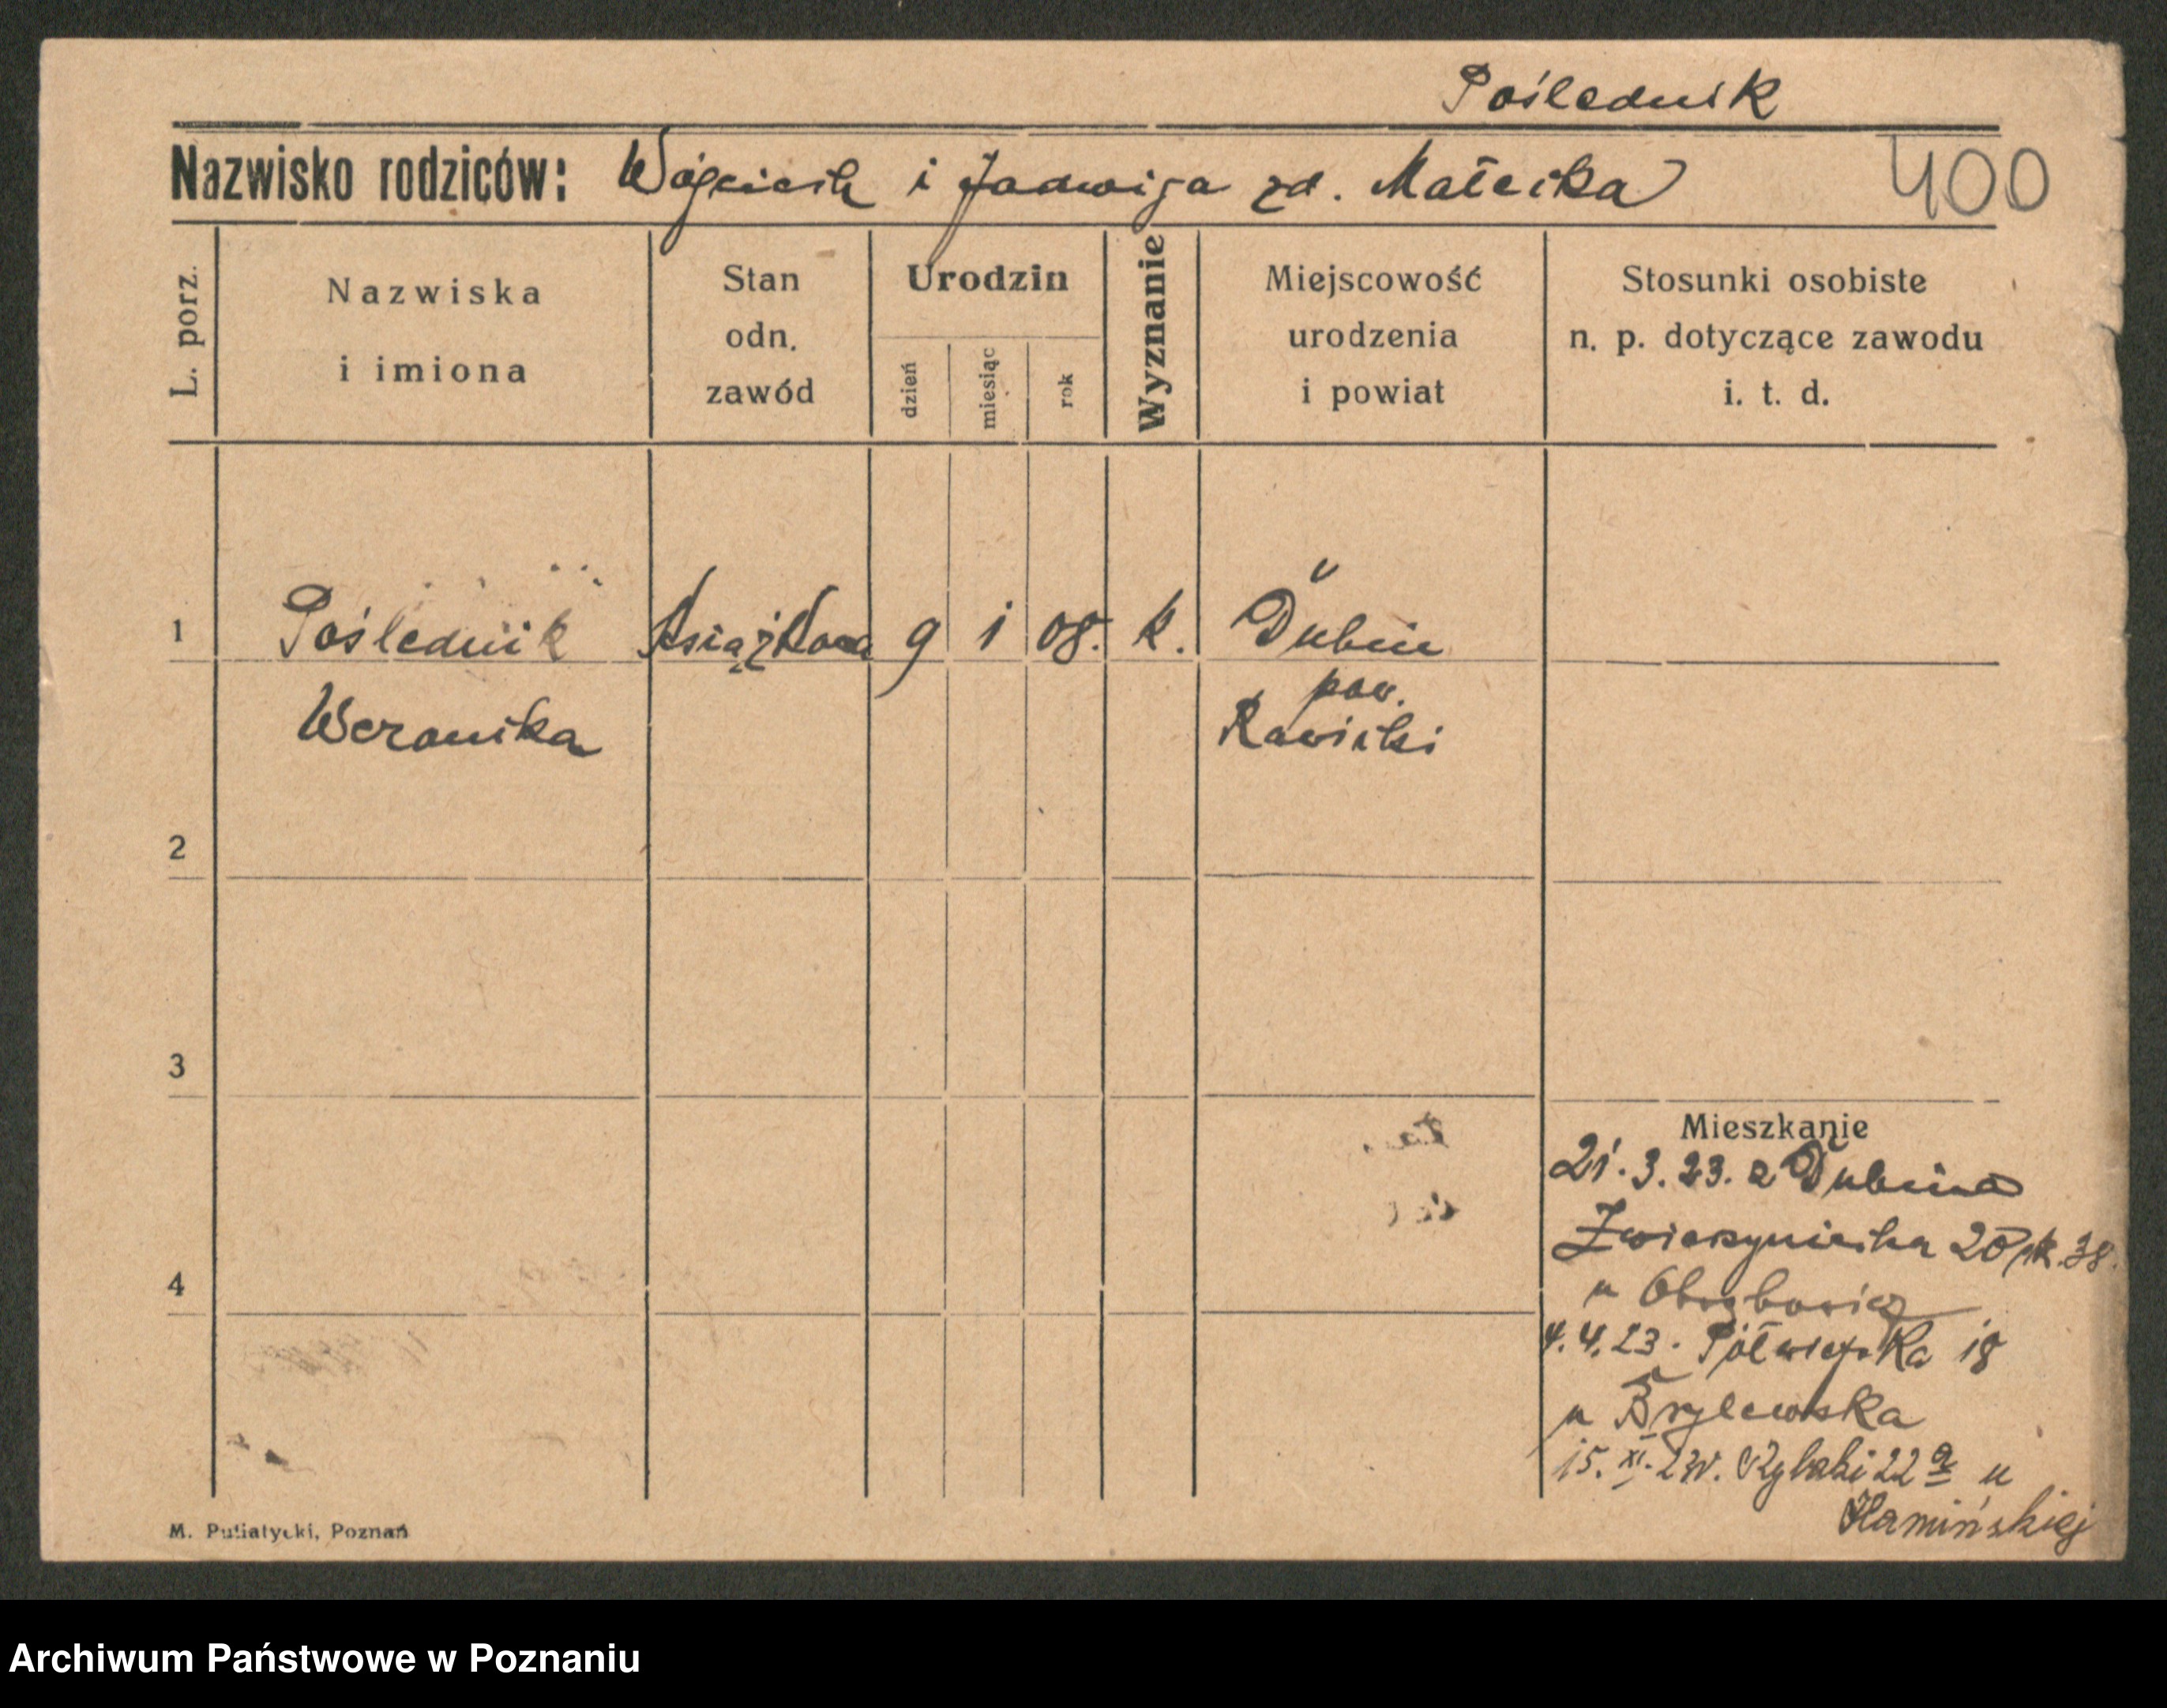 Poślednik
Nazwisko rodziców: Wojciech i Jadwiga zd. Małecka
400
L. porz.
Nazwiska
i imiona
Stan
odn.
zawód
Urodzin
dzień
miesiąc
rok
Wyznanie
Miejscowość
urodzenia
i powiat
Stosunki osobiste
n. p. dotyczące zawodu
i. t. d.
1 Poślednik Książkowa 9 1 08. k. Dubin
pow.
Weronika Rawicki
2
3
Mieszkanie
21.3.23. z Dubina
Zwierzyniecka 20
4
u
4.4.23. Półwiejska 18
u Brylewska
15. XI. Rybaki 22 a u
Kamińskiej
M. Putiatycki, Poznań
Archiwum Państwowe w Poznaniu